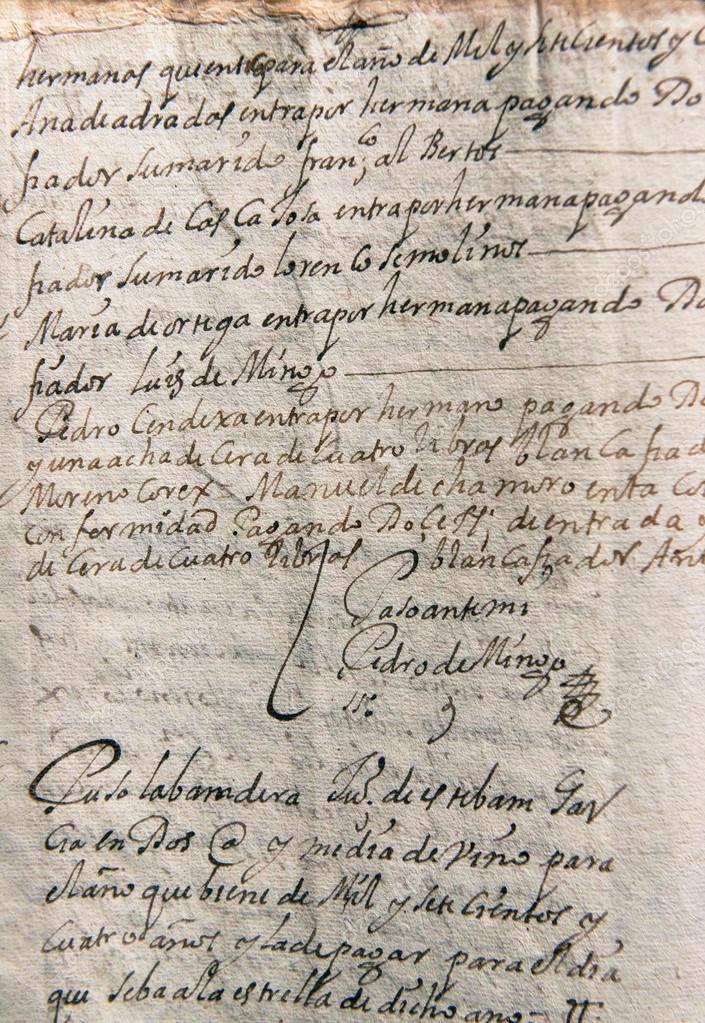 hermanos quientrapara elaño de Mil y seteCientos y C
Anadeadrados entrapor hermana pagando Do
fiador sumarido fran.co al Bertos
Catalina de CasCaJosa entraporhermanapagand
fiador sumarido lorenCo semolinos
María deortega entrapor hermanapagando Do
fiador Luis de Mingo
Pedro Cendexaentrapor hermano pagando Do
yunaachadeCeradeCuatro libros blanCa fiad
Moreno Corex Manueldechamoro enta Con
conformidad Pagando DoCe dientrada y
de CeradeCuatro libros blanCafiador Ant
Pasoantemi
Pedro de Mingo
Puso labandera Ju.o de estebam Gar
Cia en Dos @ y media devino para
elaño quebiene de Mil y seteCientos y
Cuatro años yLadepagar para eldia
que sebaalaestrella de dicho ano